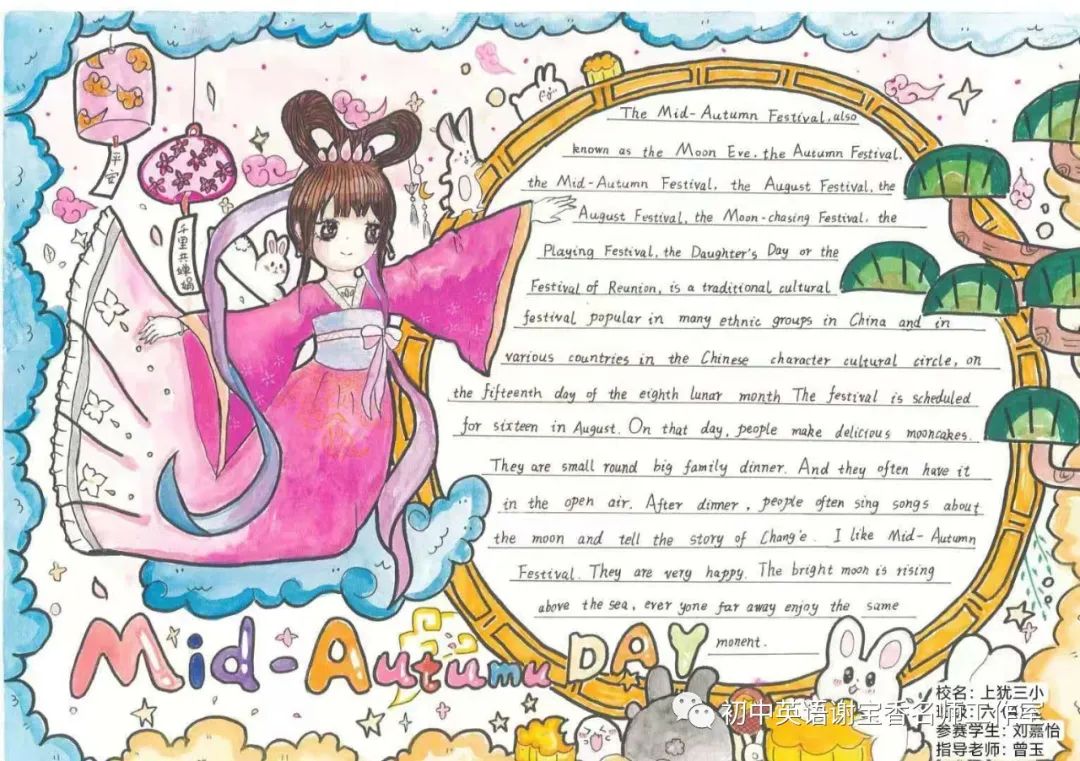 平安
千里共婵娟
The Mid-Autumn Festival, also
known as the Moon Eve, the Autumn Festival,
the Mid-Autumn Festival, the August Festival, the
August Festival, the Moon-chasing Festival, the
Playing Festival, the Daughter's Day or the
Festival of Reunion, is a traditional cultural
festival popular in many ethnic groups in China and in
various countries in the Chinese character cultural circle, on
the fifteenth day of the eighth lunar month The festival is scheduled
for sixteen in August. On that day, people make delicious mooncakes.
They are small round big family dinner. And they often have it
in the open air. After dinner, people often sing songs about
the moon and tell the story of Chang'e. I like Mid-Autumn
Festival. They are very happy. The bright moon is rising
above the sea, ever yone far away enjoy the same
monent.
Mid-Autumu DAY
校名：上犹三小
参赛学生：刘嘉怡
指导老师：曾玉
初中英语谢宝香名师工作室